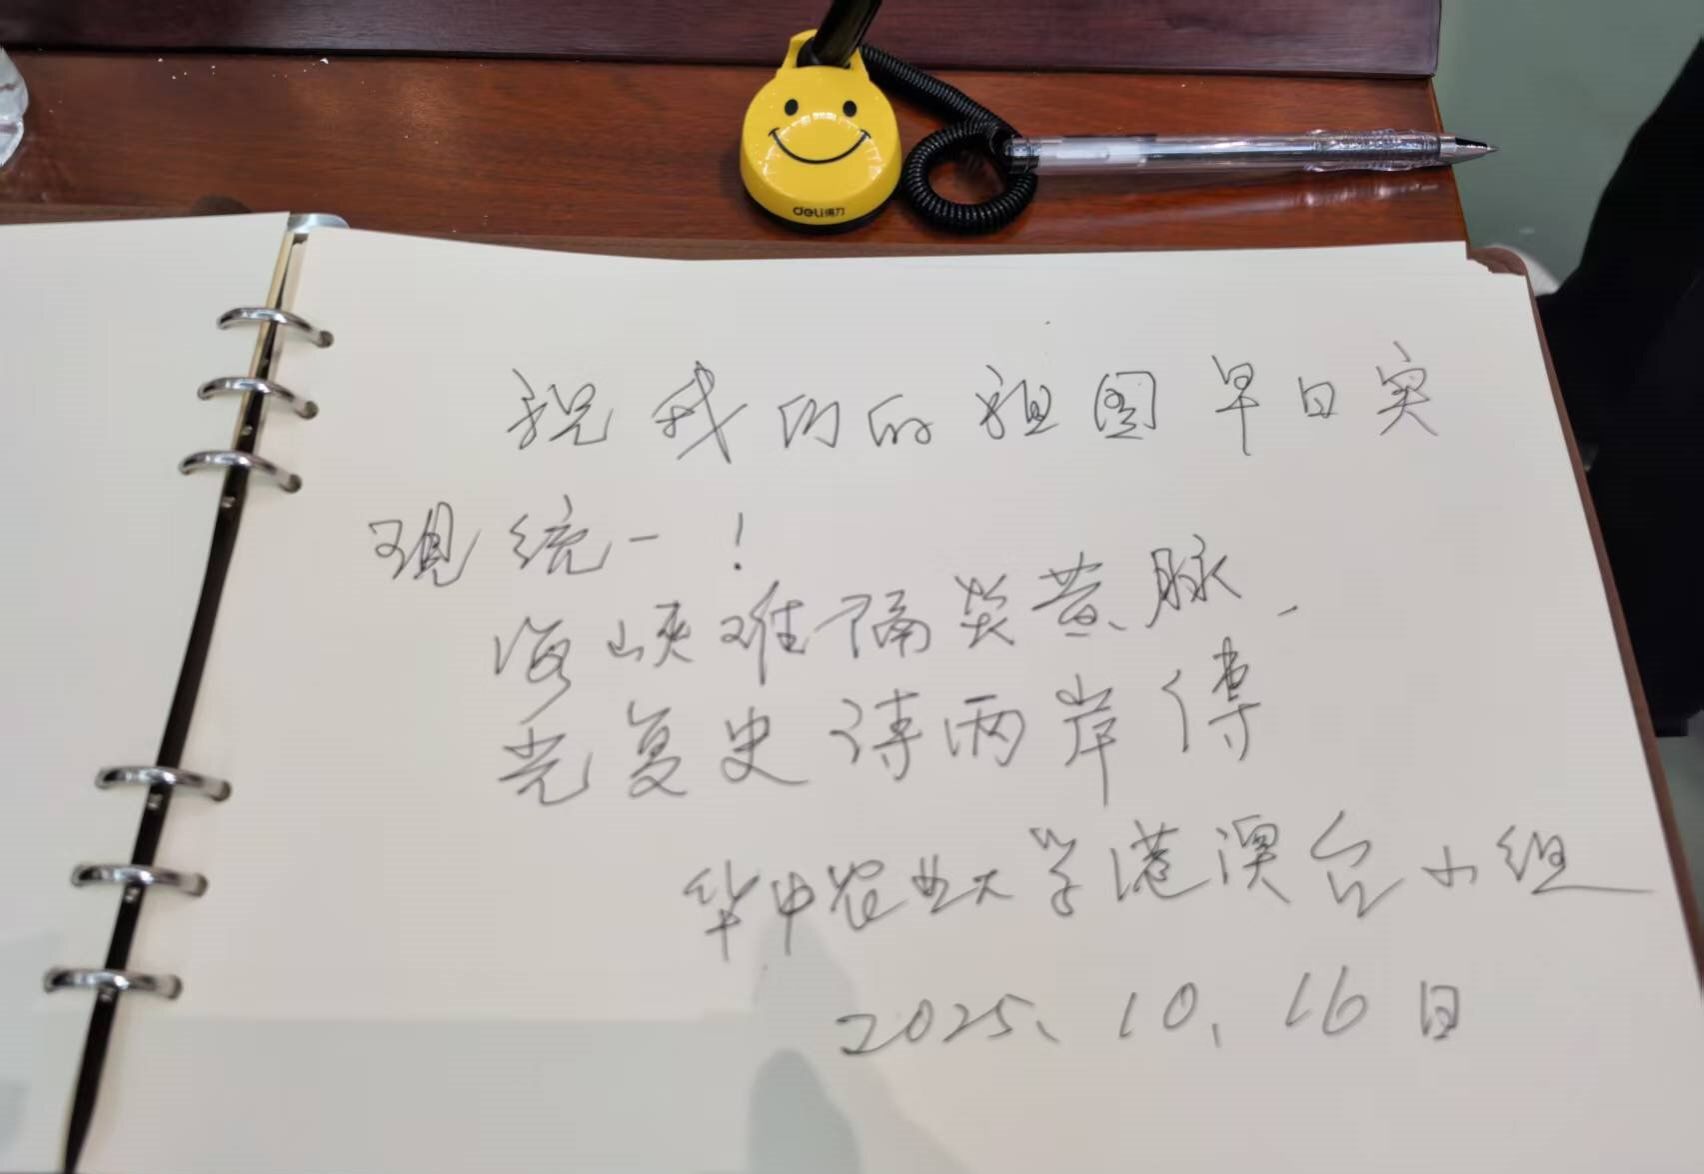 deli得力
祝我们的祖国早日实
现统一！
海峡难隔炎黄脉、
光复史诗两岸传
华中农业大学港澳台小组
2025、10、16日